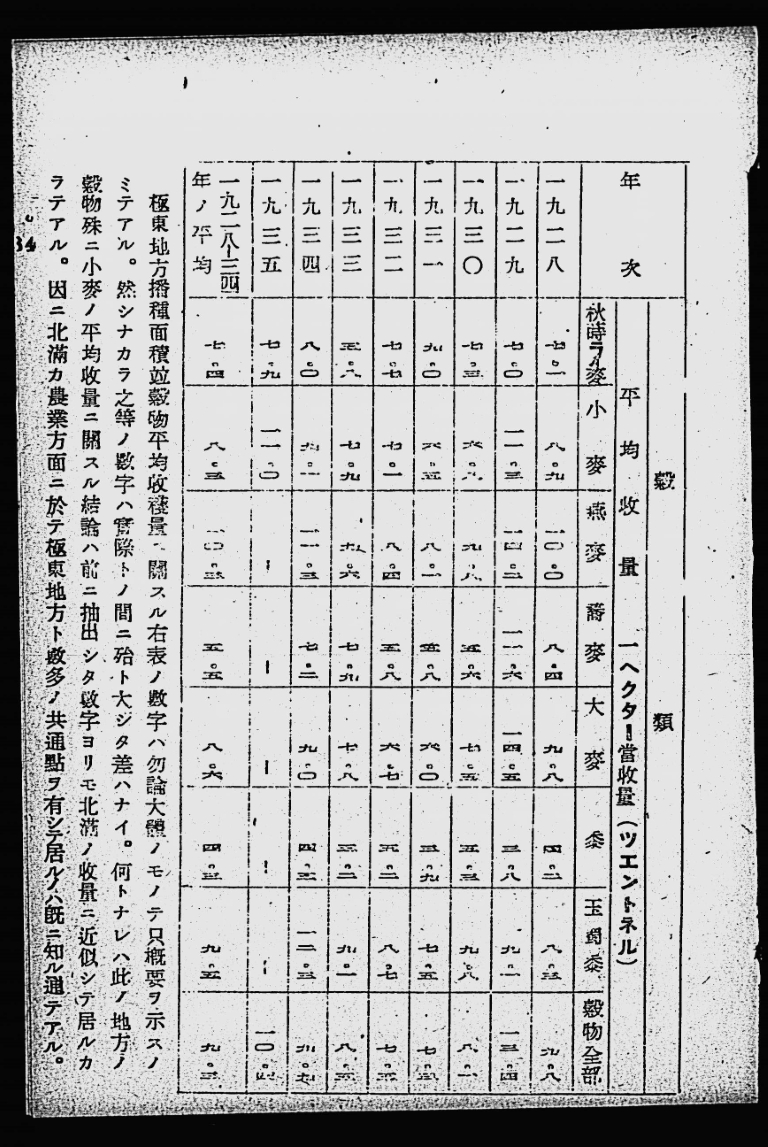 穀類
平均收量 一ヘクター當收量(ツエントネル)
年次 秋蒔ライ麥 小麥 燕麥 蕎麥 大麥 黍 玉蜀黍 穀物全部
一九二八 七。一 八。九 一〇。〇 八。四 九。八 四。二 八。三 九。八
一九二九 七。〇 一一。三 一四。二 一一。六 一四。五 三。八 九。一 一三。四
一九三〇 七。三 六。八 九。八 五。六 七。五 五。三 九。八 八。一
一九三一 九。〇 六。五 八。一 五。八 六。〇 三。九 七。五 七。三
一九三二 七。七 七。一 八。四 五。八 六。七 八。七
一九三三 五。八 七。九 九。六 七。九 七。八 三。二 九。一
一九三四 八。〇 九。一 一一。三 七。二 九。〇 四。三 一二。三 九。七
一九三五 七。九 一一。〇 ー ー ー ー ー 一〇。四
一九二八ー三四年ノ平均 七。四 八。三 一〇。三 五。五 八。六 四。三 九。五 九。三
極東地方播種面積竝穀物平均收穫量ニ關スル右表ノ數字ハ勿論大體ノモノテ只槪要ヲ示スノ
ミテアル。然シナカラ之等ノ數字ハ實際トノ間ニ殆ト大ジタ差ハナイ。何トナレハ此ノ地方ノ
穀物殊ニ小麥ノ平均收量ニ關スル結論ハ前ニ抽出シタ數字ヨリモ北滿ノ收量ニ近似シテ居ルカ
ラテアル。因ニ北滿カ農業方面ニ於テ極東地方ト數多ノ共通點ヲ有シテ居ルノハ旣ニ知ル通テアル。
34